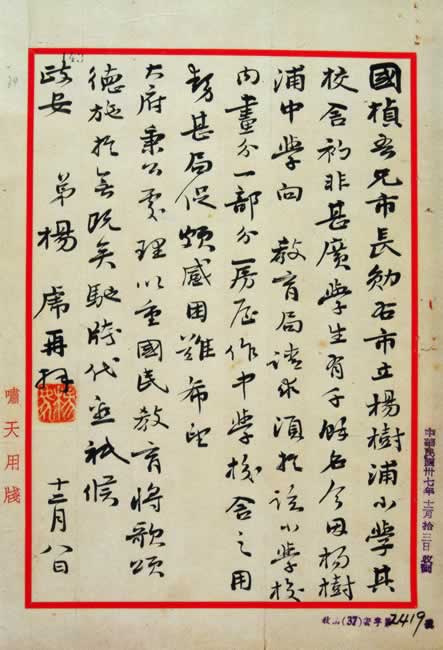 國楨吾兄市長勛右市立楊樹浦小學其
校舍初非甚廣學生有千餘名今因楊樹
浦中學向 教育局請求須於該小學校
內畫分一部分房屋作中學校舍之用
勢甚局促頗感困難希望
大府秉公處理以重國民教育將歌頌
德施於無既矣馳牋代面祇候
政安 弟楊虎再拜
十二月八日
嘯天用牋
中華民國卅七年十二月拾三日收到
(37) 字第2419號